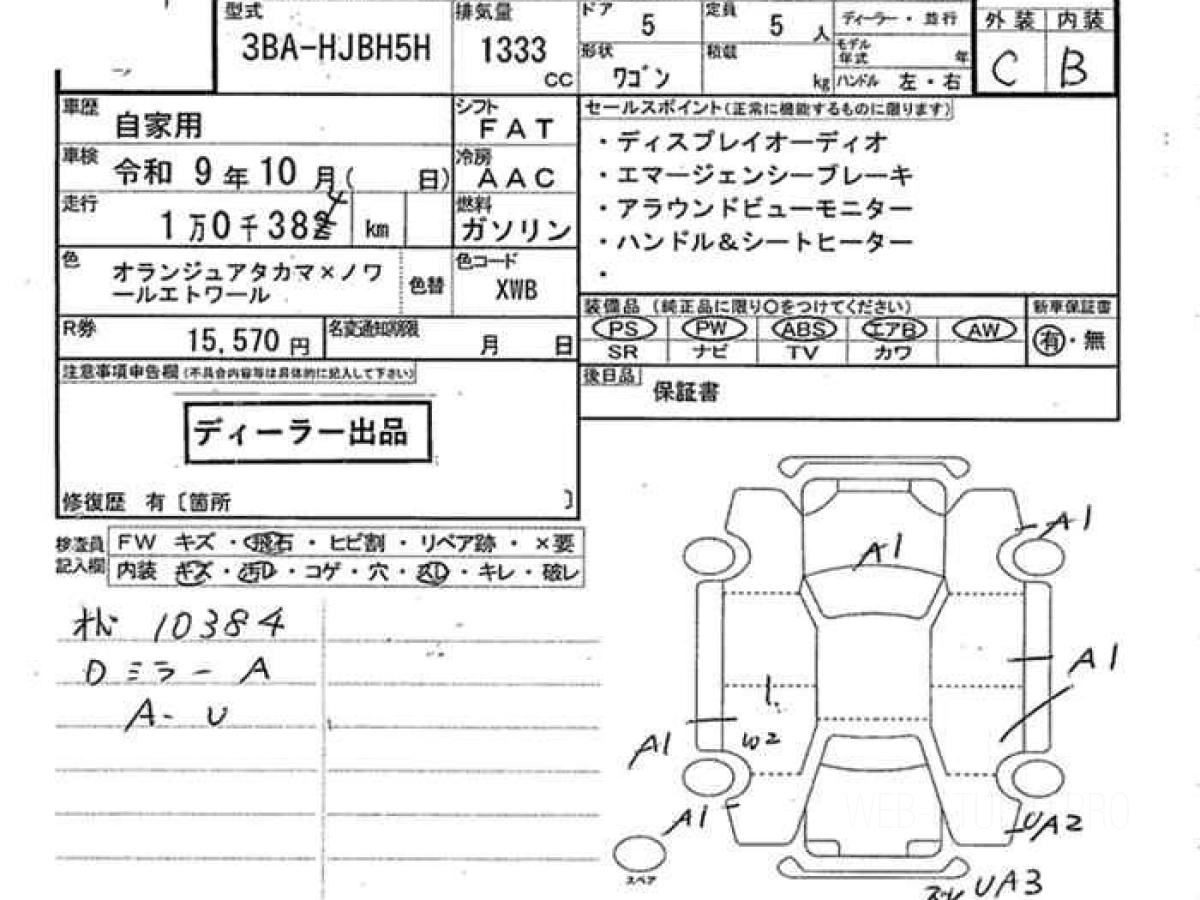 型式
3BA-HJBH5H
排気量
1333
CC
ドア
5
定員
5
人
形状
ワゴン
積載
kg
ディーラー・並行
モデル年式
年
ハンドル 左・右
外装 内装
C B
車歴
自家用
シフト
FAT
車検
令和 9年 10月( 日)
冷房
AAC
走行
1万0千38 4
km
燃料
ガソリン
色
オランジュアタカマ×ノワ
ールエトワール
色替
色コード
XWB
R券
15,570 円
名変通知期限
月 日
注意事項申告欄(不具合内容等は具体的に記入して下さい)
ディーラー出品
修復歴 有〔箇所 〕
セールスポイント(正常に機能するものに限ります)
・ディスプレイオーディオ
・エマージェンシーブレーキ
・アラウンドビューモニター
・ハンドル&シートヒーター
・
装備品 (純正品に限り○をつけてください)
新車保証書
PS PW ABS エアB AW
SR ナビ TV カワ
有・無
後日品
保証書
検査員
記入欄
FW キズ・飛石・ヒビ割・リペア跡・×要
内装 キズ・汚レ・コゲ・穴・スレ・キレ・破レ
10384
Dミラー A
A- U
A1
A1
A1
A1
A1
W2
UA2
UA3
スペア
WEB
PRO